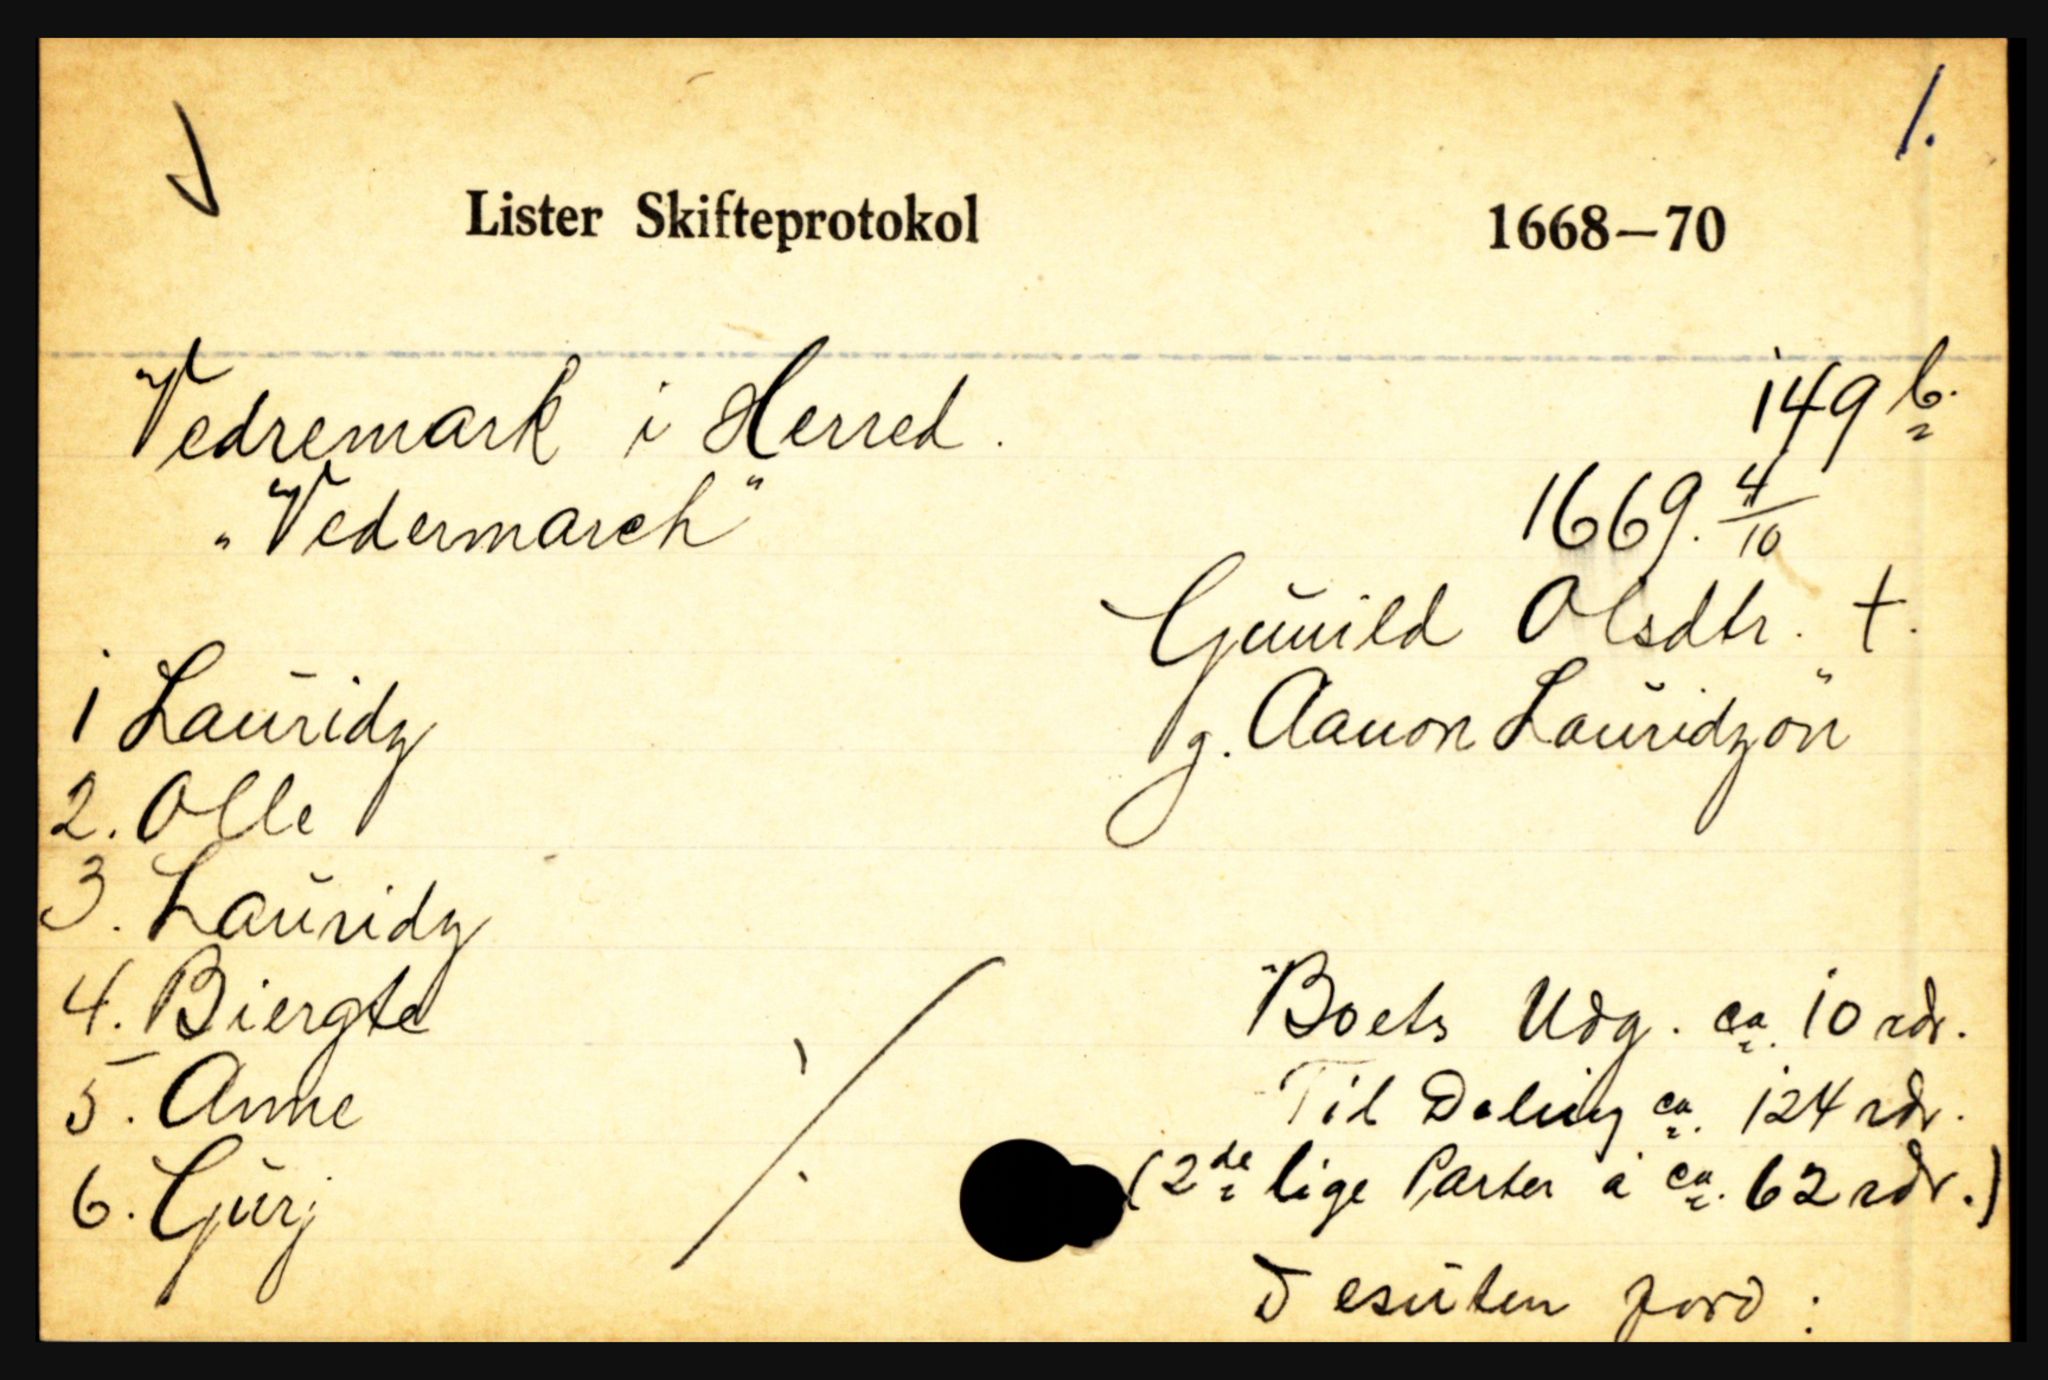 1.
Lister Skifteprotokol 1668—70
Vedremark i Herred. 149 b.
"Vedermarch" 1669. 4/10
Gunild Olsdtr. †.
g. Aanon Lauridzön
1 Lauridz
2. Olle
3. Lauridz
4. Biergte
5. Anne
6. Gurj
Boets Udg. ca. 10 rdr.
Til Deling ca. 124 rdr.
(2de lige Parter á ca. 62 rdr.)
Desuten jord: